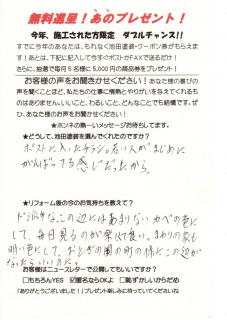 無料進呈！あのプレゼント！
今年、施工された方限定　ダブルチャンス!!
すでに今年のあなたは、もれなく池田塗装クーポン券がもらえます！あとは、下記に記入して今すぐポストかFAXで送るだけ！
さらに、抽選で毎月5名様に5,000円の商品券をプレゼント！
お客様の声をお聞きかせください！あなた様の喜びの声を聞くことほど、私たちの仕事に情熱とやりがいを与えてくれるものはありません。いいこと、わるいこと、どんなことでも結構です。ぜひ、あなた様の声をお聞かせください！
★ホンネの熱～いメッセージお待ちしてます。
★どうして、池田塗装を選んでくれたのですか？
ポストに入ったチラシ。若い人がまじめに
がんばってる感じだったから。
★リフォーム後の今のお気持ちを教えて？
なこの辺にはあまりない カベの色にして、毎日見るのが楽しくて良い。まわりの家も
明い色にして、おとぎの国の町の様にこの辺が
なったらいいのに。
お客様はニュースレターで公開してもいいですか？
□もちろんYES　☑匿名ならOKよ　□恥ずかしいからだめ
「ありがとうございました！」プレゼント楽しみに待っていてくださいね